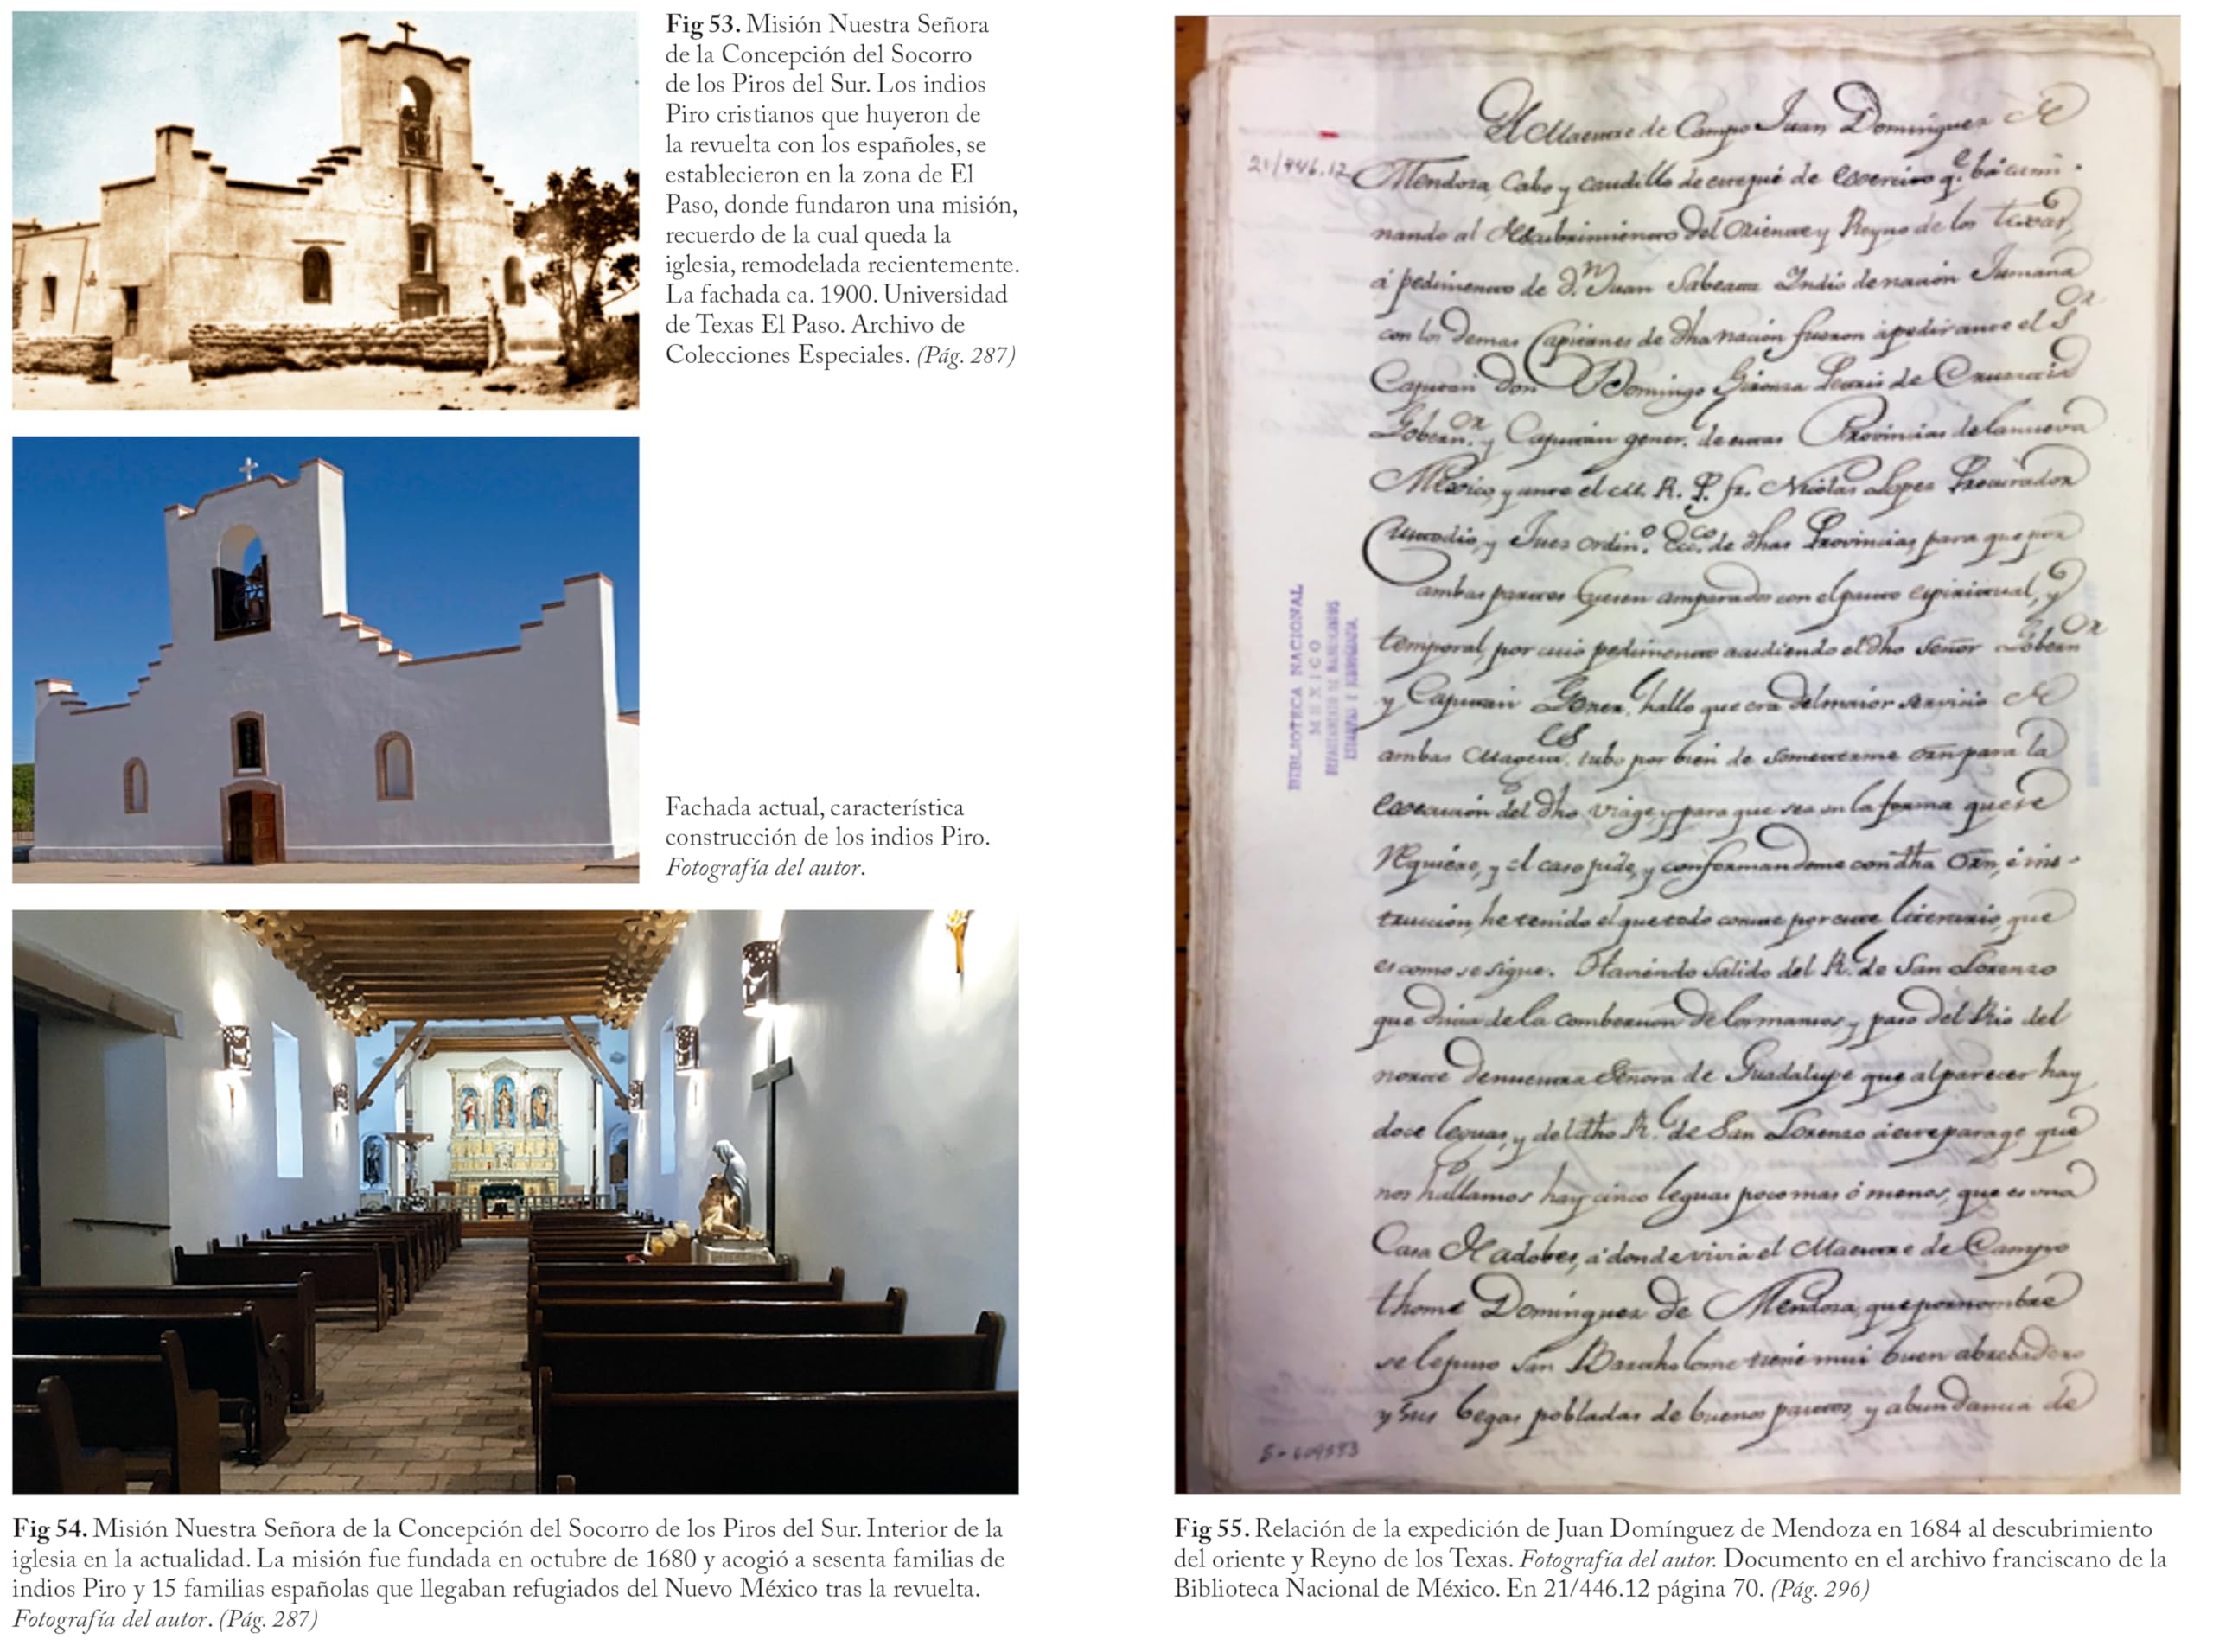 Fig 53. Misión Nuestra Señora
de la Concepción del Socorro
de los Piros del Sur. Los indios
Piro cristianos que huyeron de
la revuelta con los españoles, se
establecieron en la zona de El
Paso, donde fundaron una misión,
recuerdo de la cual queda la
iglesia, remodelada recientemente.
La fachada ca. 1900. Universidad
de Texas El Paso. Archivo de
Colecciones Especiales. (Pág. 287)
Fachada actual, característica
construcción de los indios Piro.
Fotografía del autor.
Fig 54. Misión Nuestra Señora de la Concepción del Socorro de los Piros del Sur. Interior de la
iglesia en la actualidad. La misión fue fundada en octubre de 1680 y acogió a sesenta familias de
indios Piro y 15 familias españolas que llegaban refugiados del Nuevo México tras la revuelta.
Fotografía del autor. (Pág. 287)
El Maestre de Campo Juan Dominguez de
21/446.12
Mendoza, Cabo y caudillo de
nando al descubrimiento del Oriente y Reyno de los texas,
á pedimento de D.n Juan Sabeata Indio de nación Jumana
con los demas Capitanes de dha nación fueron á pedir ante el S.or
Capitan Don Domingo Gironza Petris de Cruzate
Gobern.or y Capitán gener.l de estas Provincias de la nueva
Mexico, y ante el M. R. P. fr. Nicolas Lopez Procurador
Custodio, y Juez ordin.o Ecc.co de dhas Provincias, para que por
ambas partes fuesen amparados con el pasto espiritual, y
temporal, por cuio pedimento atendiendo el dho Señor Gobern.or
y Capitán Gener.l hallo que era del maior servicio de
ambas Magest.es tubo por bien de someterme orn para la
execución del dho viage, y para que sea en la forma que se
requiere, y el caso pide, y conformandome con dha orn, é ins-
trucción, he tenido el que todo conste por este literario, que
es como se sigue. Haviendo salido del R.l de San Lorenzo
que dista de la combersion de los mansos, y paso del Rio del
norte de nuestra Señora de Guadalupe que al parecer hay
doce leguas, y del dho R.l de San Lorenzo á este parage que
nos hallamos hay cinco leguas poco mas ó menos, que es una
Casa de adobes, á donde vivia el Maestre de Campo
thome Dominguez de Mendoza, que por nombre
se le puso San Bartholome tiene mui buen abrebadero
y sus begas pobladas de buenos pastos, y abundancia de
BIBLIOTECA NACIONAL
MEXICO
Fig 55. Relación de la expedición de Juan Domínguez de Mendoza en 1684 al descubrimiento
del oriente y Reyno de los Texas. Fotografía del autor. Documento en el archivo franciscano de la
Biblioteca Nacional de México. En 21/446.12 página 70. (Pág. 296)